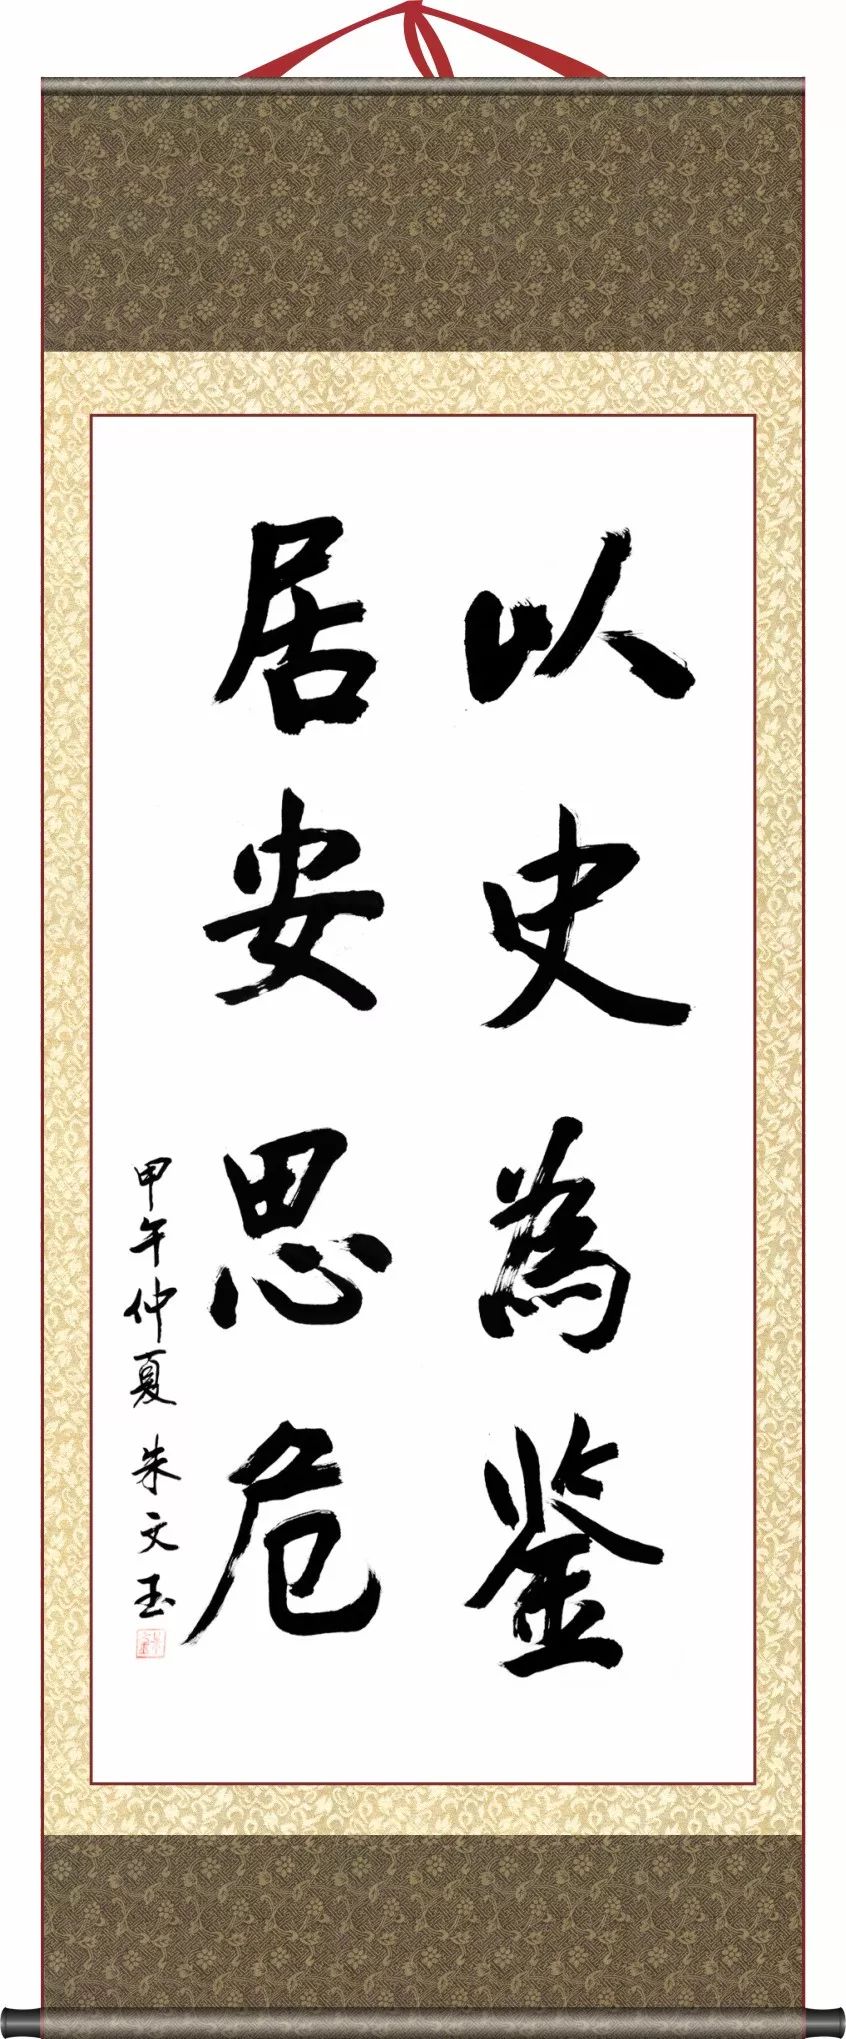 以史為鉴
居安思危
甲午仲夏 朱文玉